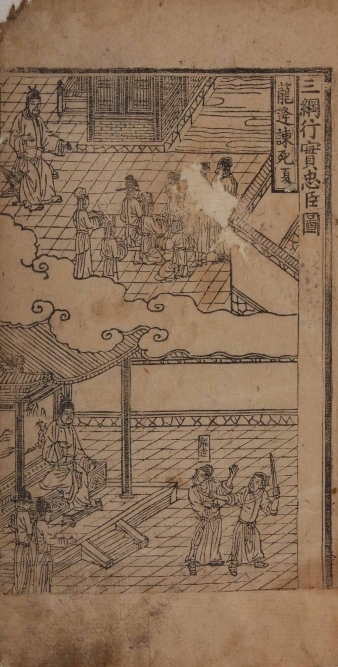 三綱行實忠臣圖
龍逄諫死 夏
龍逄